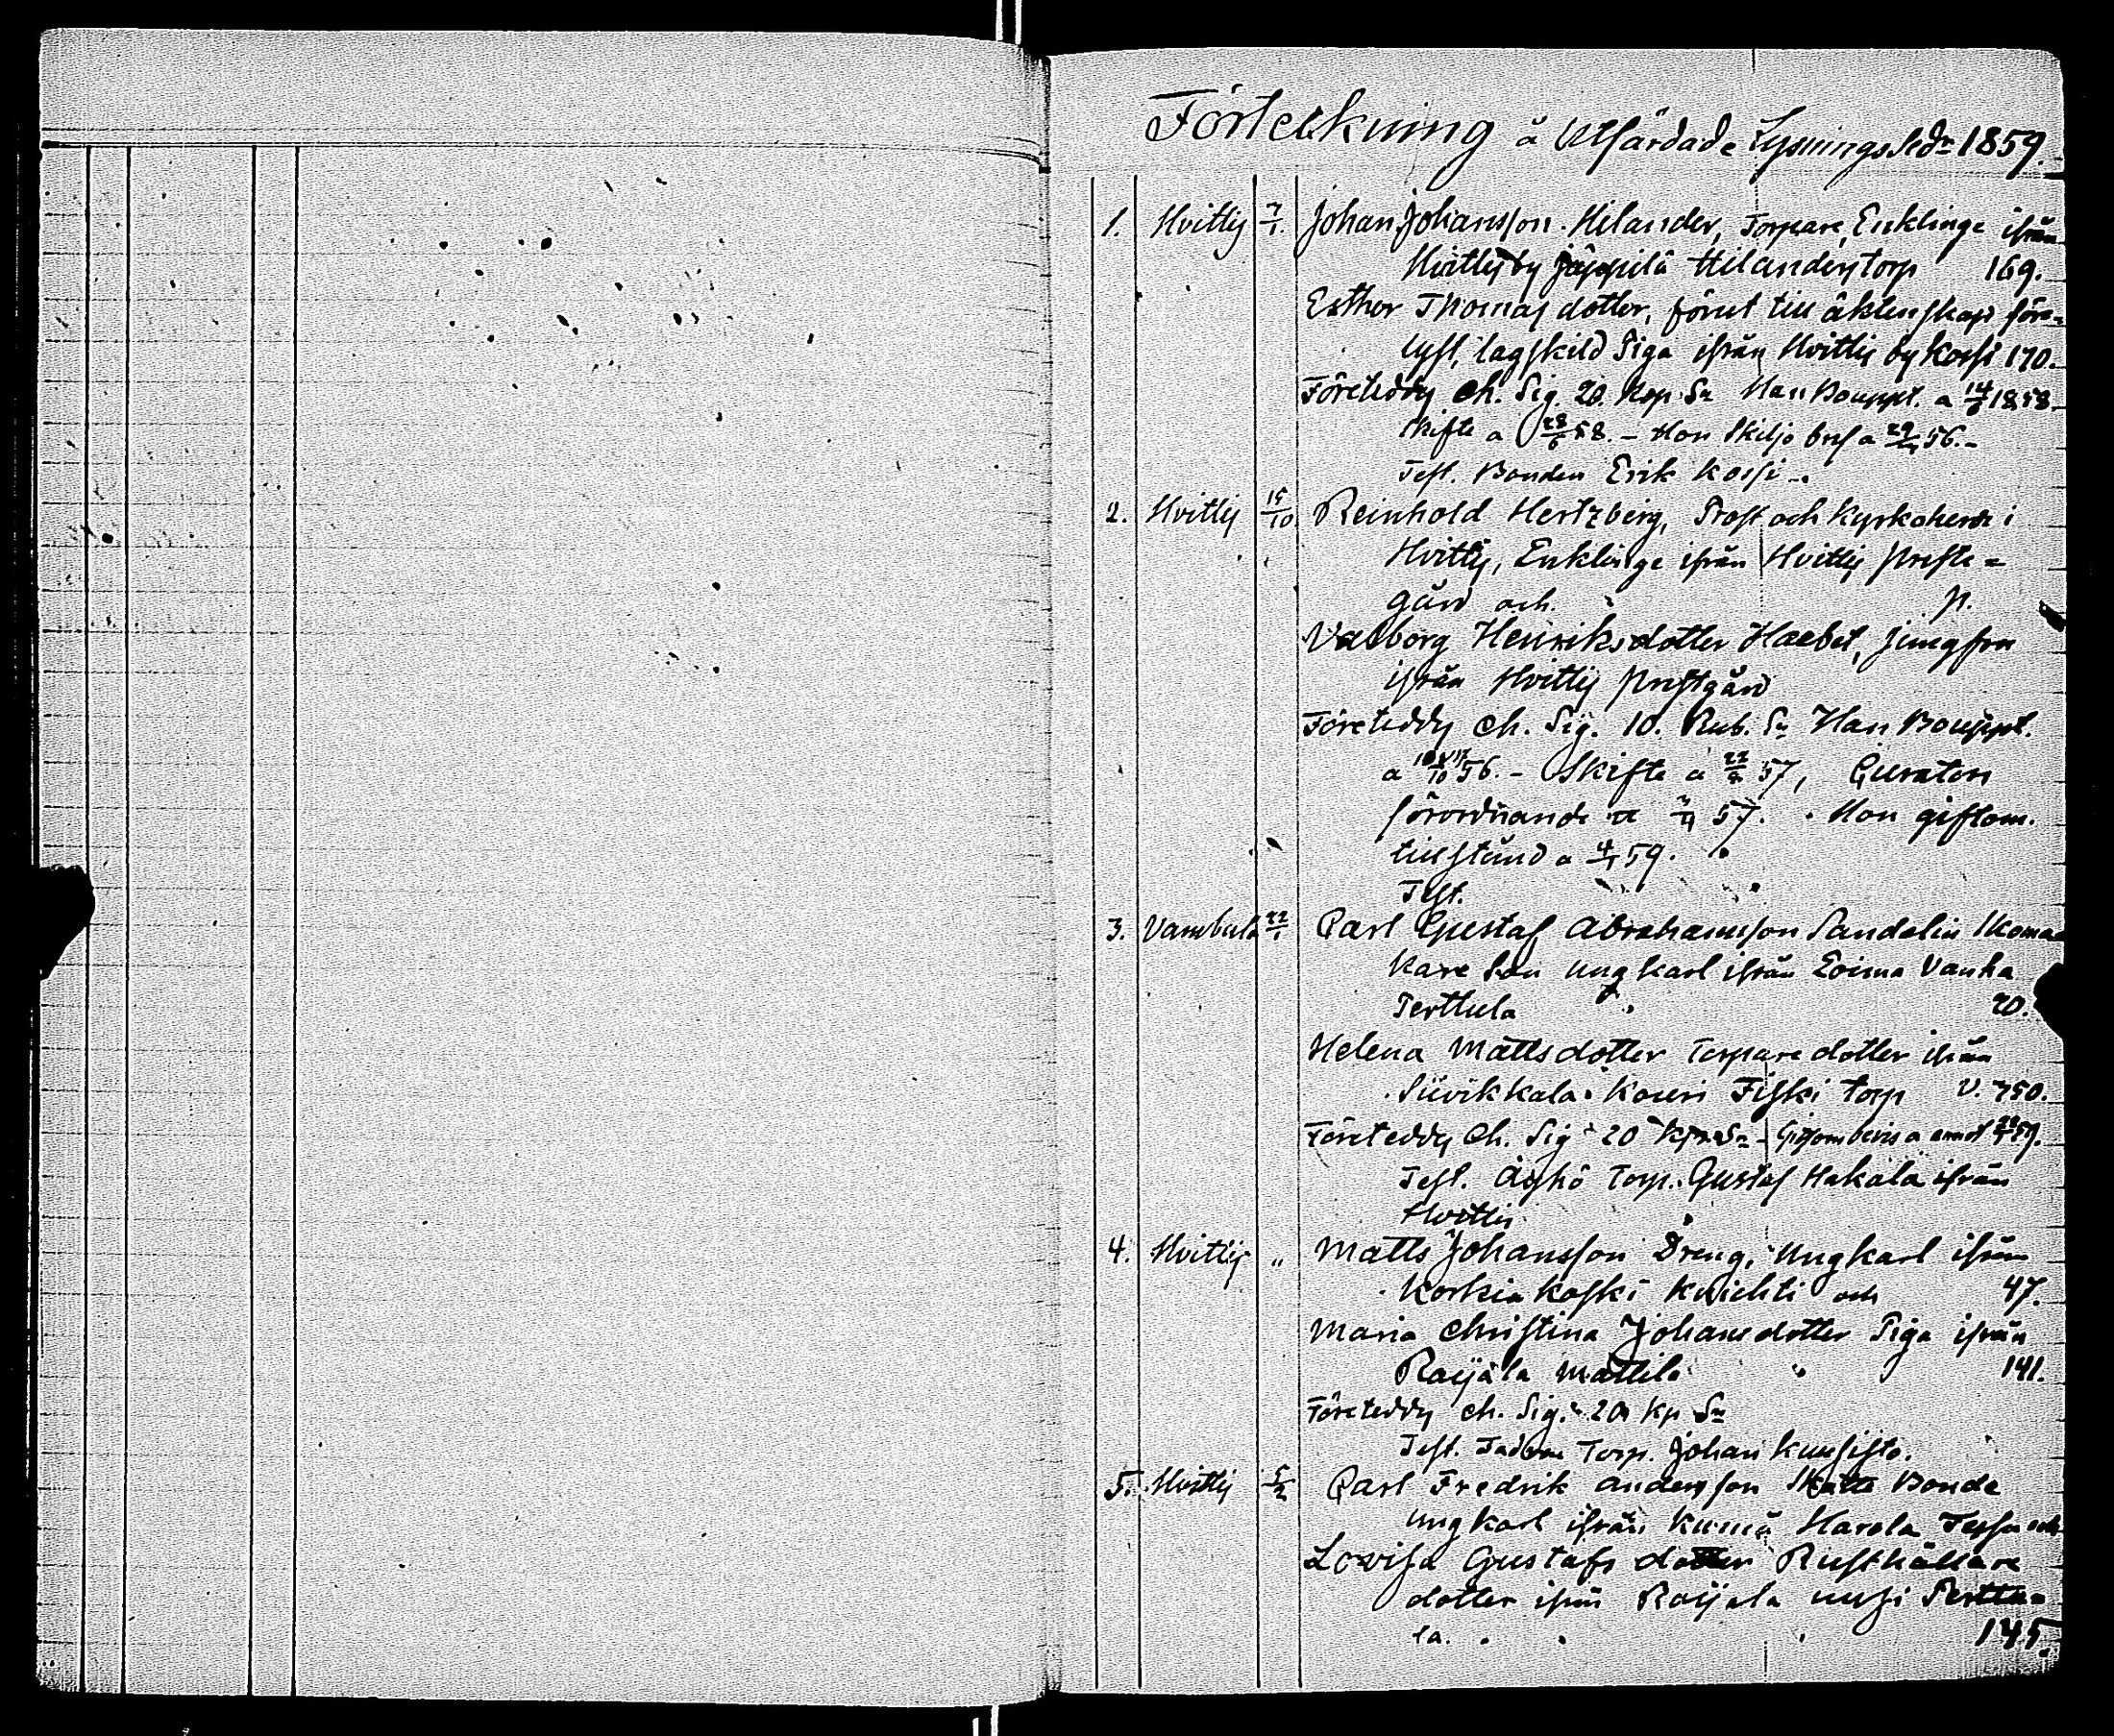 Förteckning å Utfärdade Lysnings Sedr 1859.
1. Hvittis 7/1. Johan Johansson Hilander, Torpare, Enklinge ifrån
Hvittis by Jäppilä Hilanders torp 169.
Esther Thomas dotter, förut till äktenskap före-
lyst, lagskild Piga ifrån Hvittis by Kossi 170.
Företeddes Ch. Sig. 20. Kop. Sr Han Bouppt. a 14/6 1858
skifte a 28/6 58. - Hon Skiljo bref a 56.-
Test. Bonden Erik Kossi -.
2. Hvittis 15/10 Reinhold Hertzberg, Prost och Kyrkoherde i
Hvittis, Enklinge ifrån Hvittis preste-
gård och p.
Valborg Henriksdotter Haebel, jungfru
ifrån Hvittis prestgård
Företeddes Ch. Sig. 10. Rub. Sr Han Bouppt.
a 56. - Skifte a 57, Curators
förordnande a 57. Hon giftom.
tillstånd a 4/1 59.
Test.
3. Vambula 22/1 Carl Gustaf Abrahamsson Sandelin Skoma-
kare Son ungkarl ifrån Loima Vanha
Perttula 20.
Helena Mattsdotter Torpare dotter ifrån
Suvikkala Kouri Fiski torp V. 750.
Företeddes Ch. Sig. 20 Kp. Sr - Giftom bevis a 59.
Test. Torp. Gustaf Hakala ifrån
Hvittis
4. Hvittis " Matts Johansson Dreng, Ungkarl ifrån
Korkiakoski Knichti och 47.
Maria Christina Johansdotter Piga ifrån
Raijala Mattila 141.
Företeddes Ch. Sig. 20 Kp Sr
Test. Fadren Torp. Johan Kuusisto.
5. Hvittis 5/2 Carl Fredrik Andersson Skatte Bonde
ungkarl ifrån Kumå Harola och
Lovisa Gustafs dotter Rusthållare
dotter ifrån Raijala uusi Perttu-
la. 145.